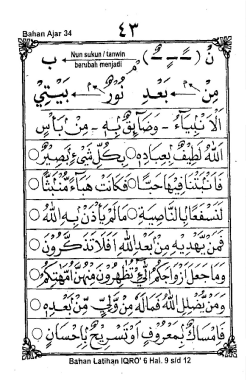 Bahan Ajar 34
٤٣
نْ (ـًـ ـٍـ ـٌـ)
Nun sukun / tanwin
berubah menjadi
م
ب
مِنْۢ بَعْدِ نُوْرٌۢ بَيْتِيْ
اَلْاَنْۢبِيَاءُ - وَضَآئِقٌۢ بِهٖ - مِنْۢ بَأْسٍ
اَللهُ لَطِيْفٌۢ بِعِبَادِهٖ ○ بِكُلِّ شَيْءٍۢ بَصِيْرٌ ○
فَاَنْۢبَتْنَا فِيْهَا حَبًّا ○ فَكَانَتْ هَبَآءً مُّنْۢبَثًّا ○
لَنَسْفَعًۢا بِالنَّاصِيَةِ ○ مَا لَمْ يَأْذَنْۢ بِهِ اللهُ ○
فَمَنْ يَّهْدِيْهِ مِنْۢ بَعْدِ اللهِ اَفَلَا تَذَكَّرُوْنَ ○
وَمَا جَعَلَ اَزْوَاجَكُمُ الّٰٓـِٔيْ تُظٰهِرُوْنَ مِنْهُنَّ اُمَّهٰتِكُمْ ○
وَمَنْ يُّضْلِلِ اللهُ فَمَا لَهٗ مِنْ وَّلِيٍّ مِّنْۢ بَعْدِهٖ ○
فَاِمْسَاكٌۢ بِمَعْرُوْفٍ اَوْ تَسْرِيْحٌۢ بِاِحْسَانٍ ○
Bahan Latihan IQRO' 6 Hal. 9 s/d 12